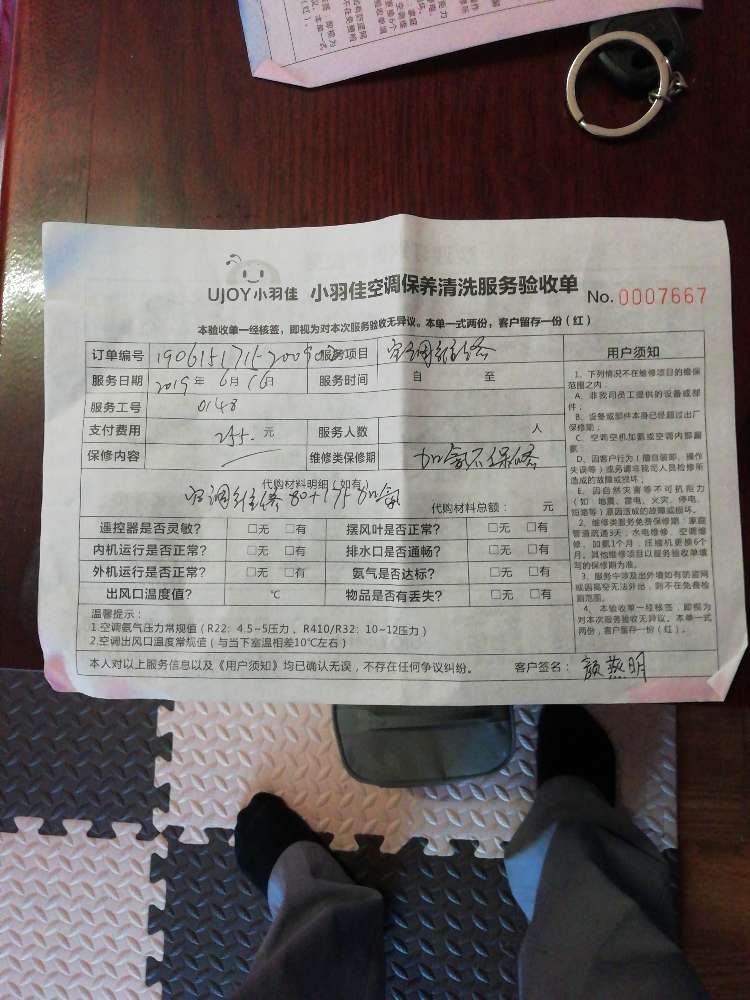 UJOY小羽佳 小羽佳空调保养清洗服务验收单 No. 0007667
本验收单一经核签，即视为对本次服务验收无异议。本单一式两份，客户留存一份（红）
订单编号 服务项目 空调维修
服务日期 2019年 6月16日 服务时间 自 至
服务工号 0148
支付费用 255. 元 服务人数 人
保修内容 维修类保修期 加氨不保修
代购材料明细（如有）
空调维修80+175加氨 代购材料总额： 元
遥控器是否灵敏？ □无 □有 摆风叶是否正常？ □无 □有
内机运行是否正常？ □无 □有 排水口是否通畅？ □无 □有
外机运行是否正常？ □无 □有 氨气是否达标？ □无 □有
出风口温度值？ ℃ 物品是否有丢失？ □无 □有
温馨提示：
1.空调氨气压力常规值（R22：4.5~5压力、R410/R32：10~12压力）
2.空调出风口温度常规值（与当下室温相差10℃左右）
本人对以上服务信息以及《用户须知》均已确认无误，不存在任何争议纠纷。 客户签名： 颜燕明
用户须知
1、下列情况不在维修项目的维保
范围之内
A、非我司员工提供的设备或部
件；
B、设备或部件本身已经超过出厂
保修期；
C、空调空机加氨或空调内部漏
氨；
D、因客户行为（擅自装卸、操作
失误等）或务请非我司人员检修所
造成的故障或损坏；
E、因自然灾害等不可抗阻力
（如 地震、雷电、火灾、停电、
短路等）原因造成的故障或损坏。
2、维修类服务免费保修期：家庭
管道疏通3天；水电维修、空调维
修、加氨1个月；压缩机更换6个
月。其他维修项目以服务验收单填
写的保修期为准。
3、服务中涉及出外墙如有防盗网
或因高空无法外出，则不在免费检
测范围。
4、本验收单一经核签，即视为
对本次服务验收无异议。本单一式
两份，客户留存一份（红）。